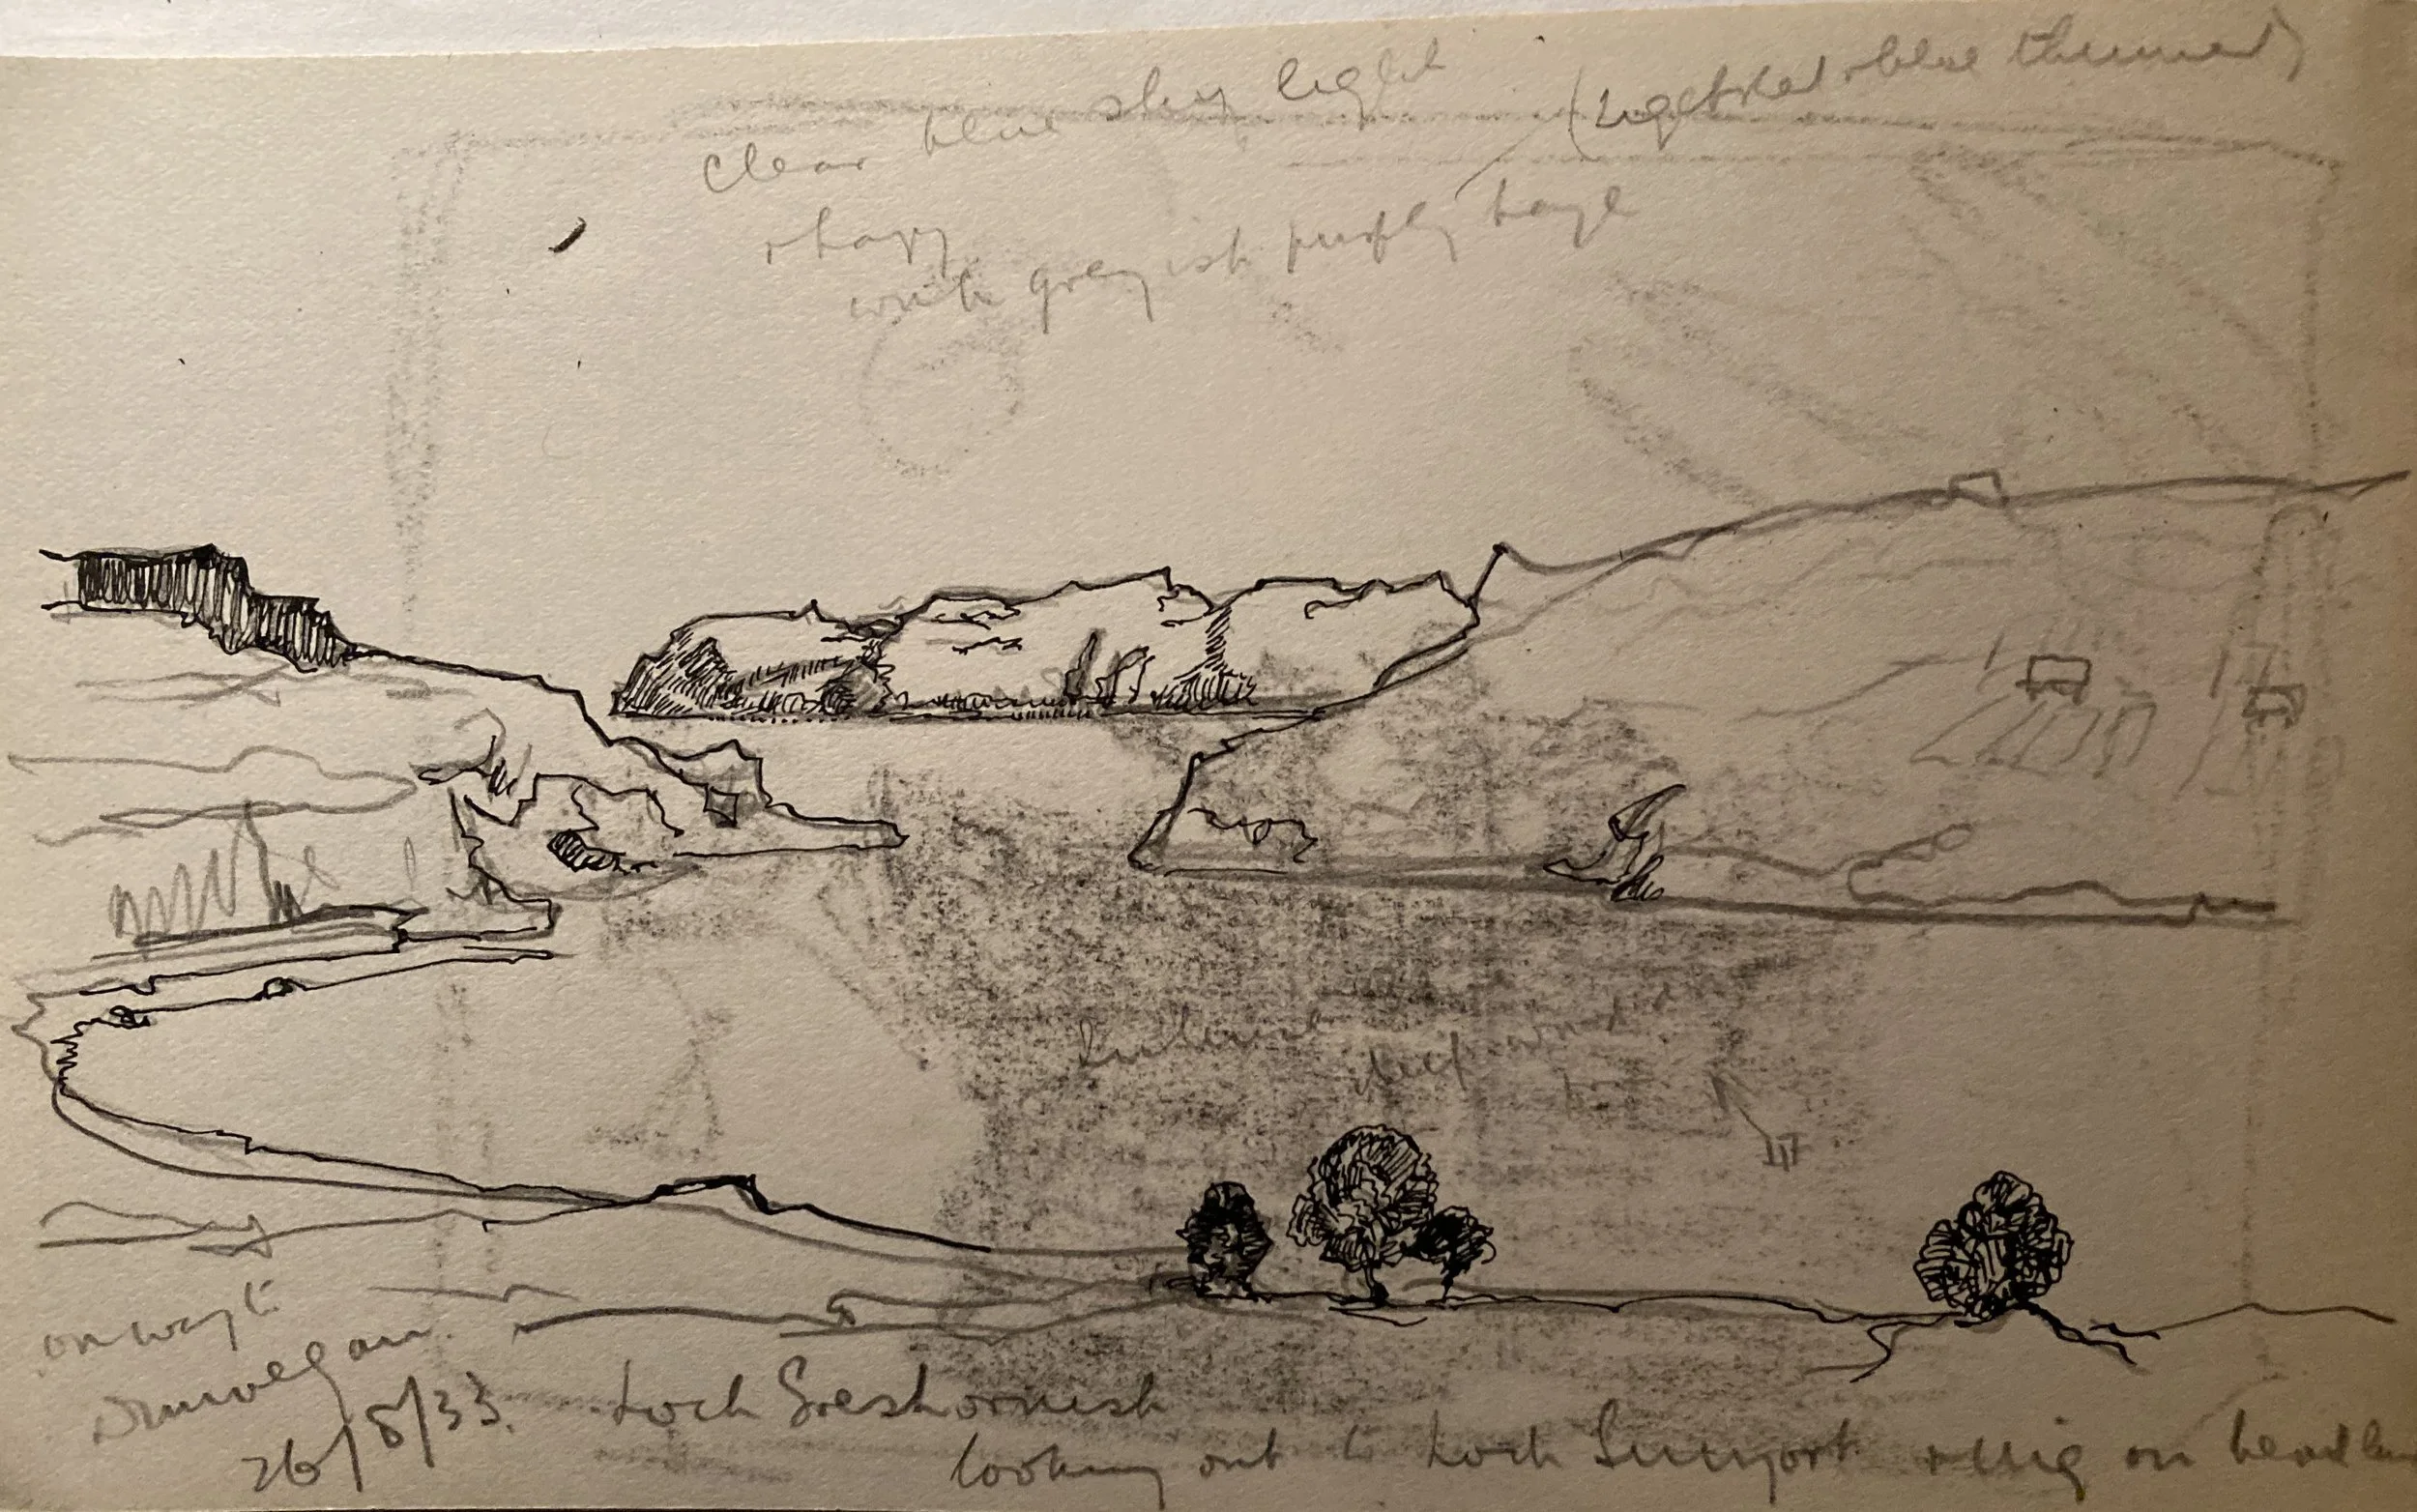 clear blue sky light
(light red + blue
+ hazy
with greyish purply haze
deep
on way to
Dunvegan.
26/8/33.
Loch Greshornish
looking out to Loch Snizort + Uig on headland